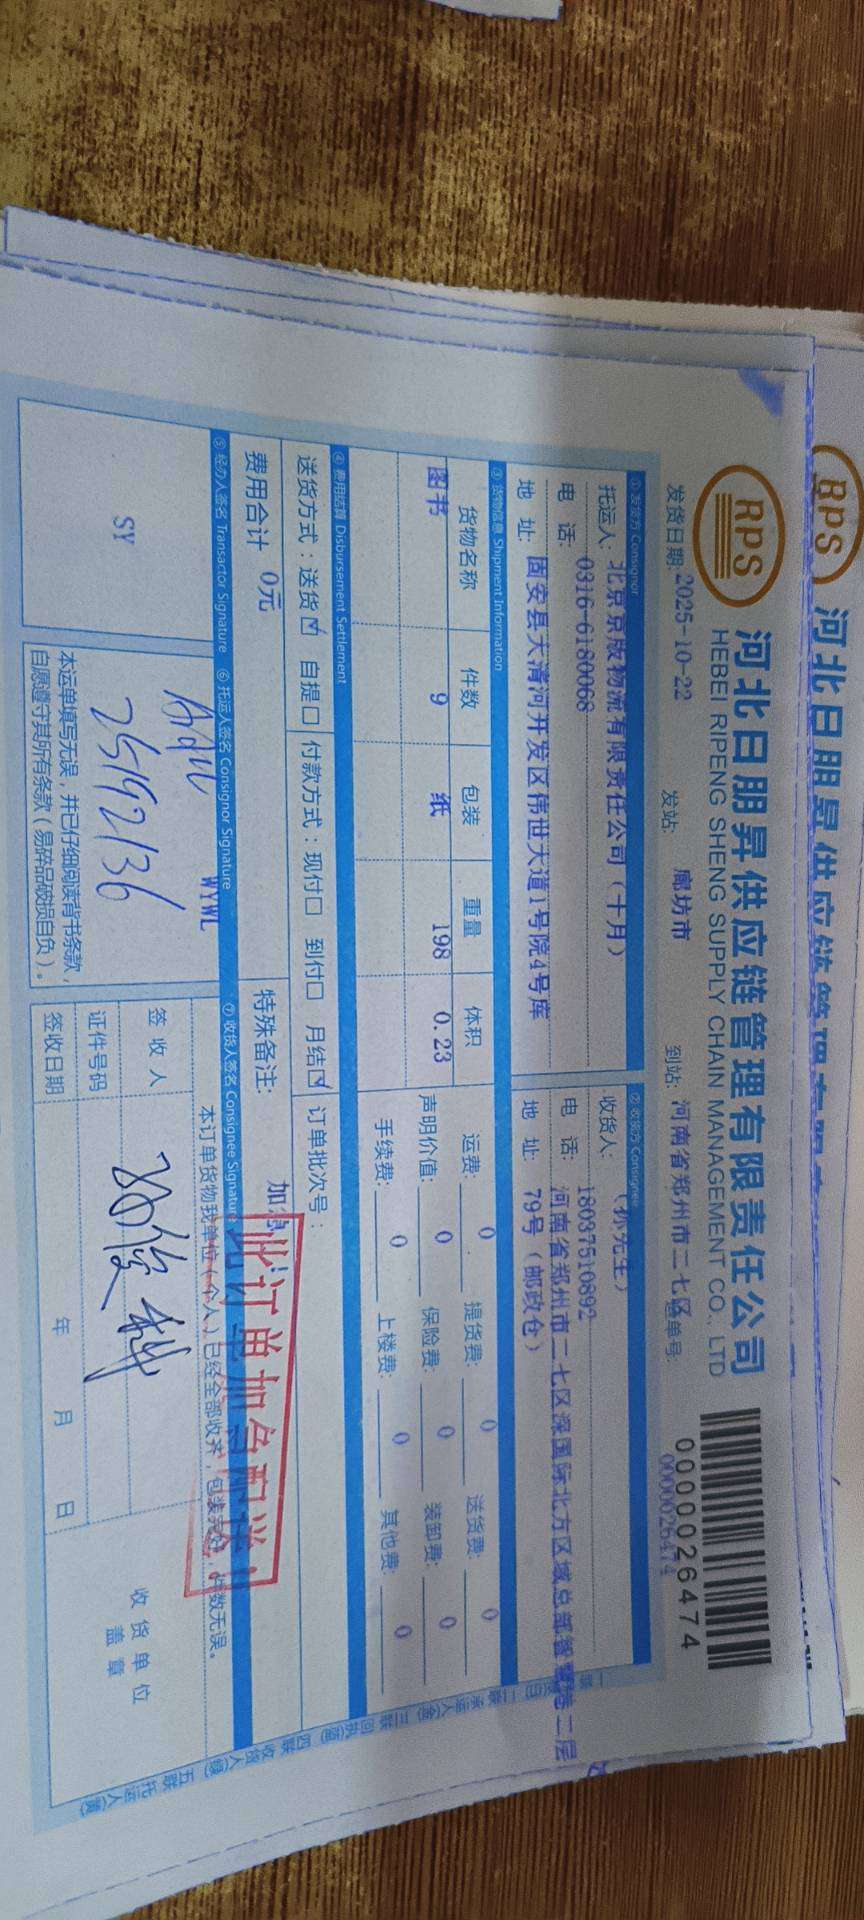 RPS
河北日朋昇供应链管理有限责任公司
RPS
河北日朋昇供应链管理有限责任公司
HEBEI RIPENG SHENG SUPPLY CHAIN MANAGEMENT CO., LTD
0000026474
0000026474
发货日期: 2025-10-22 发站: 廊坊市 到站: 河南省郑州市二七区 单号:
① 发货方 Consignor ② 收货方 Consignee
托运人: 北京京版物流有限责任公司(十月) 收货人: (孙先生)
电 话: 0316-6180068 电 话: 18037510892
地 址: 固安县大清河开发区伟世大道1号院4号库 地 址: 河南省郑州市二七区深国际北方区域总部智慧港二层
79号(邮政仓)
③ 货物信息 Shipment Information
货物名称 件数 包装 重量 体积 运费: 0 提货费: 0 送货费: 0
图书 9 纸 198 0.23 声明价值: 0 保险费: 0 装卸费: 0
手续费: 0 上楼费: 0 其他费: 0
④ 费用结算 Disbursement Settlement
送货方式:送货☑ 自提□ 付款方式:现付□ 到付□ 月结☑ 订单批次号:
费用合计 0元 特殊备注: 加急!
此订单加急配送!
⑤ 经办人签名 Transactor Signature ⑥ 托运人签名 Consignor Signature ⑦ 收货人签名 Consignee Signature
WYWL
本订单货物我单位(个人)已经全部收齐,包装完好,件数无误。
SY
25192136
签 收 人
证件号码
签收日期 年 月 日
收货单位
盖 章
本运单填写无误,并已仔细阅读背书条款,
自愿遵守其所有条款(易碎品破损自负)。